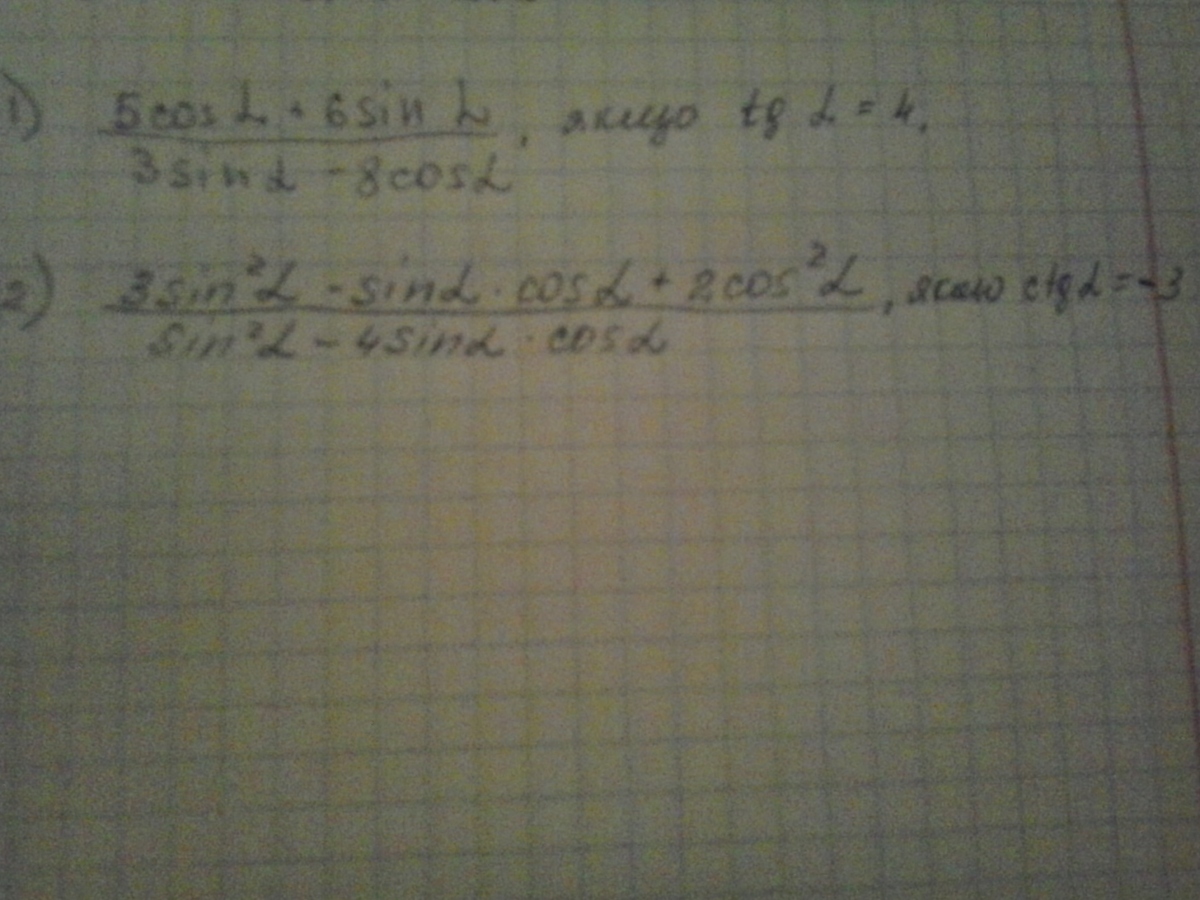 1) 5cos α + 6sin α
3sin α - 8cos α , якщо tg α = 4.
2) 3sin²α - sinα · cosα + 2cos²α
sin²α - 4sinα · cosα , якщо ctgα = -3